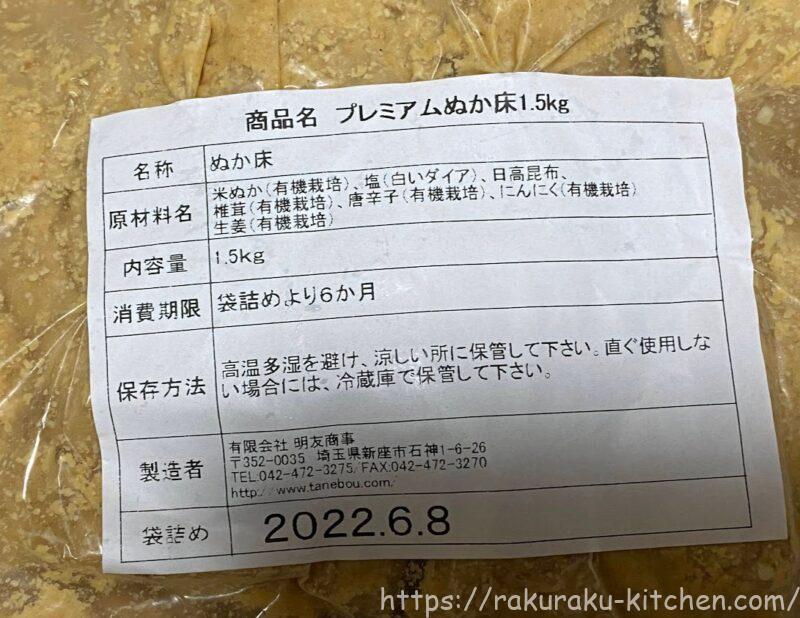 商品名 プレミアムぬか床1.5kg
名称 ぬか床
原材料名 米ぬか(有機栽培)、塩(白いダイア)、日高昆布、
椎茸(有機栽培)、唐辛子(有機栽培)、にんにく(有機栽培)
生姜(有機栽培)
内容量 1.5kg
消費期限 袋詰めより6か月
保存方法 高温多湿を避け、涼しい所に保管して下さい。直ぐ使用しな
い場合には、冷蔵庫で保管して下さい。
製造者 有限会社 明友商事
〒352-0035 埼玉県新座市石神1-6-26
TEL:042-472-3275/FAX:042-472-3270
http://www.tanebou.com/
袋詰め 2022.6.8
https://rakuraku-kitchen.com/